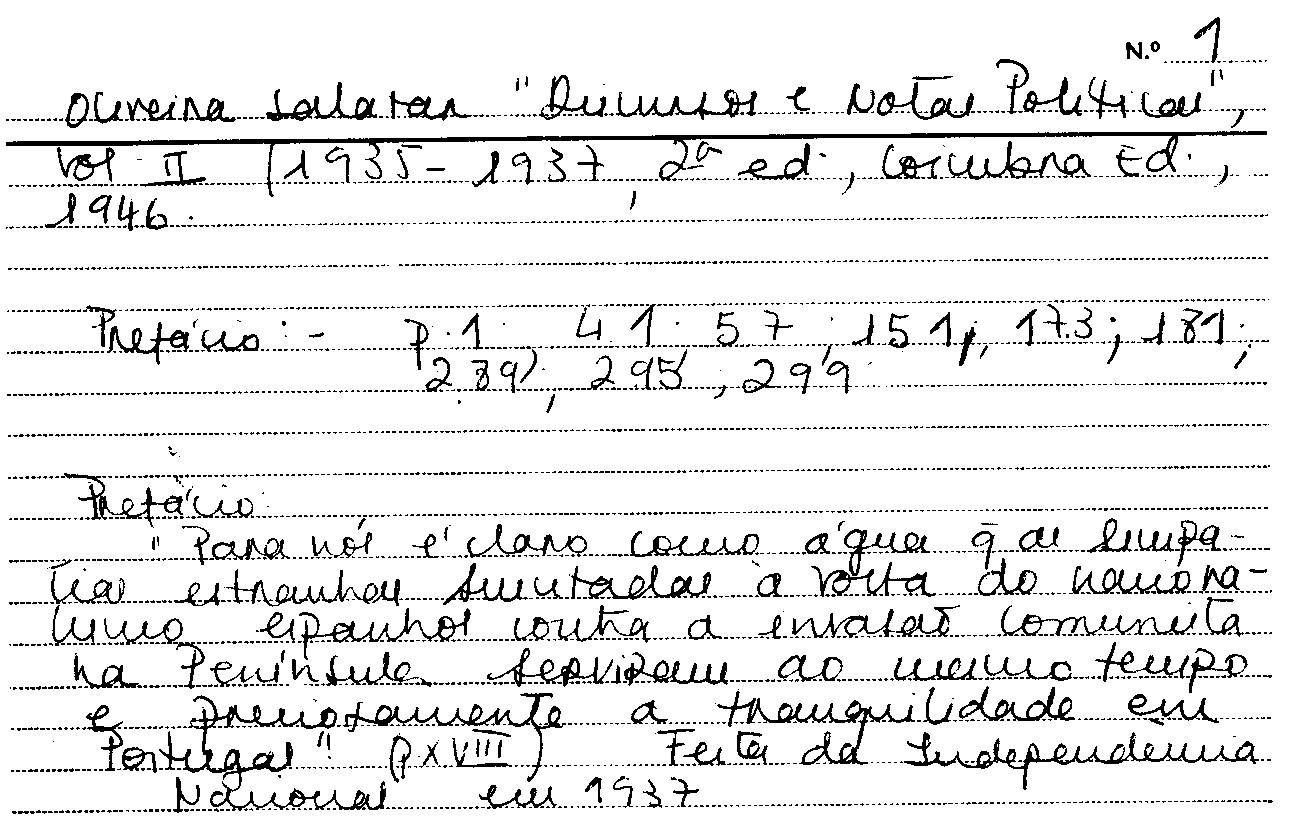 N.º 1
Oliveira Salazar "Discursos e Notas Políticas",
Vol II (1935-1937, 2ª ed., Coimbra Ed.,
1946.
Prefácio: - p. 1, 41, 57, 151, 173; 181;
289, 295, 299
Prefácio
"Para nós é claro como água q̃ as simpa-
tias estranhas suscitadas à volta do naciona-
lismo espanhol contra a invasão comunista
na Península serviram ao mesmo tempo
e preciosamente a tranquilidade em
Portugal" (p XVIII) Festa da Independência
Nacional em 1937